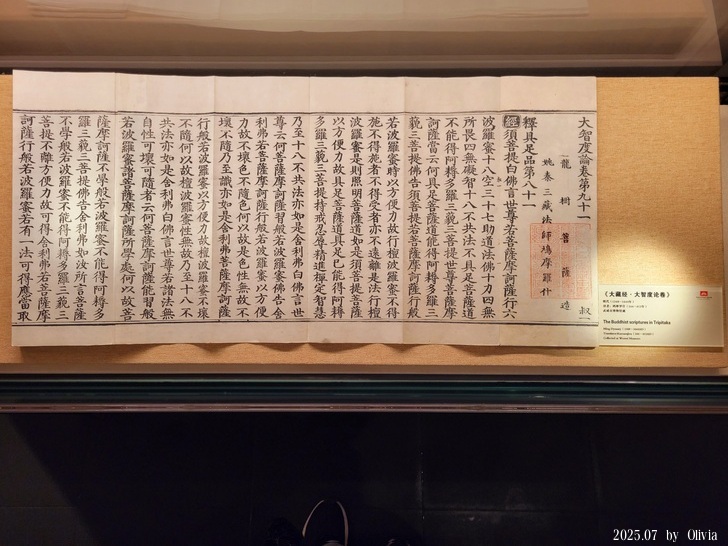 大智度論卷第九十一 叔一
龍樹菩薩造
姚秦三藏法師鳩摩羅什
釋具足品第八十一
經須菩提白佛言世尊若菩薩摩訶薩行六
波羅蜜十八空三十七助道法佛十力四無
所畏四無礙智十八不共法不具足菩薩道
不能得阿耨多羅三藐三菩提世尊菩薩摩
訶薩當云何具足菩薩道能得阿耨多羅三
藐三菩提佛告須菩提若菩薩摩訶薩行般
若波羅蜜時以方便力故行檀波羅蜜不得
施不得施者不得受者亦不遠離是法行檀
波羅蜜是則照明菩薩道如是須菩提菩薩
以方便力故具足菩薩道具足已能得阿耨
多羅三藐三菩提持戒忍辱精進禪定智慧
乃至十八不共法亦如是舍利弗白佛言世
尊云何菩薩摩訶薩習般若波羅蜜佛告舍
利弗若菩薩摩訶薩行般若波羅蜜以方便
力故不壞色不隨色何以故是色性無故不
壞不隨乃至識亦如是舍利弗菩薩摩訶薩
行般若波羅蜜以方便力故檀波羅蜜不壞
不隨何以故檀波羅蜜性無故乃至十八不
共法亦如是舍利弗白佛言世尊若諸法無
自性可壞可隨者云何菩薩摩訶薩能習般
若波羅蜜諸菩薩摩訶薩所學處何以故菩
薩摩訶薩不學般若波羅蜜不能得阿耨多
羅三藐三菩提佛告舍利弗如汝所言菩薩
不學般若波羅蜜不能得阿耨多羅三藐三
菩提不離方便力故可得舍利弗若菩薩摩
訶薩行般若波羅蜜若有一法可得應當取
《大藏经·大智度论卷》
The Buddhist scriptures in Tripitaka
2025.07 by Olivia